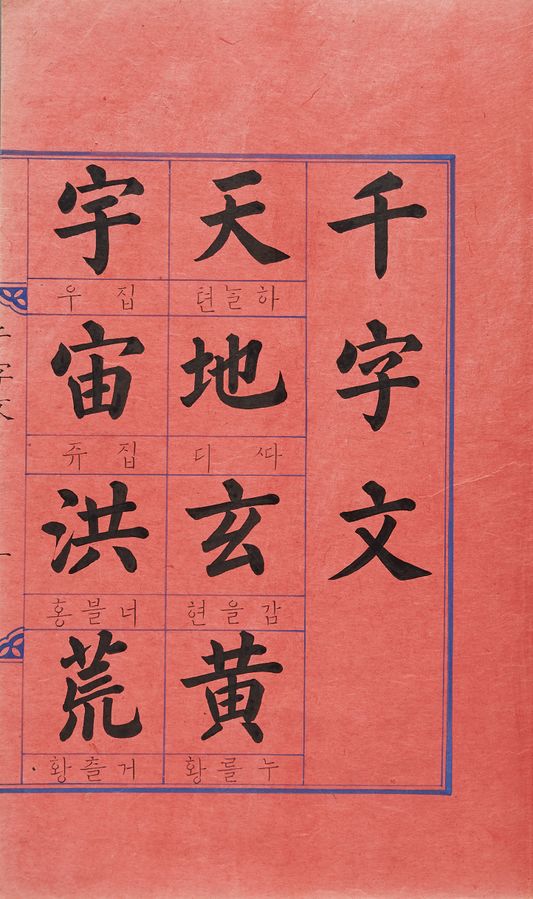 千字文
天
하늘텬
地
ᄯᅡ 디
玄
감을현
黃
누를황
宇
집 우
宙
집 쥬
洪
너블홍
荒
거츨황